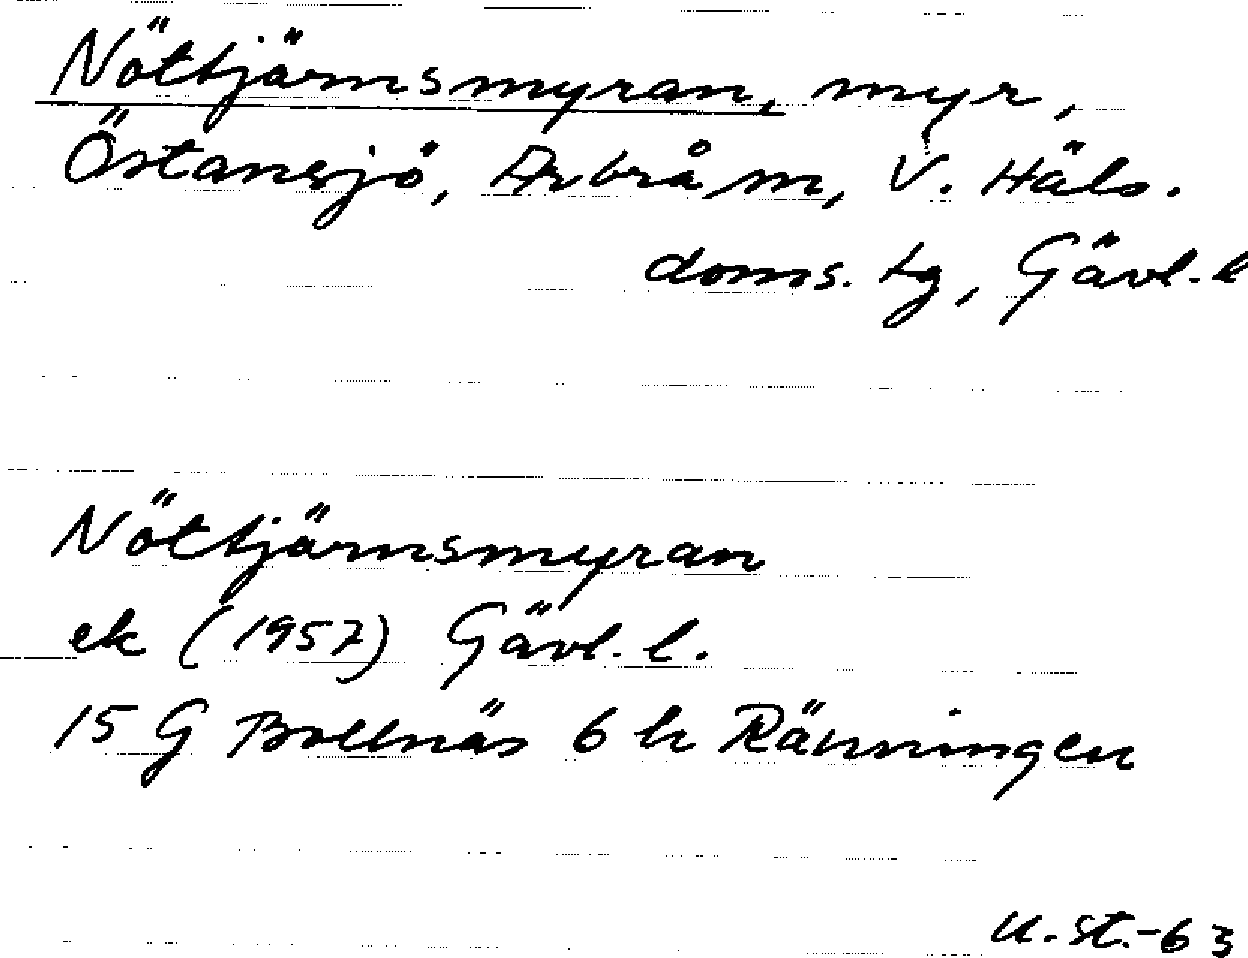 Nöttjärnsmyran, myr,
Östansjö, Arbrå sn, V. Häls.
doms. tg, Gävl. l
Nöttjärnsmyran
ek (1957) Gävl. l.
15 G Bollnäs 6 h Ränningen
U. St. -63